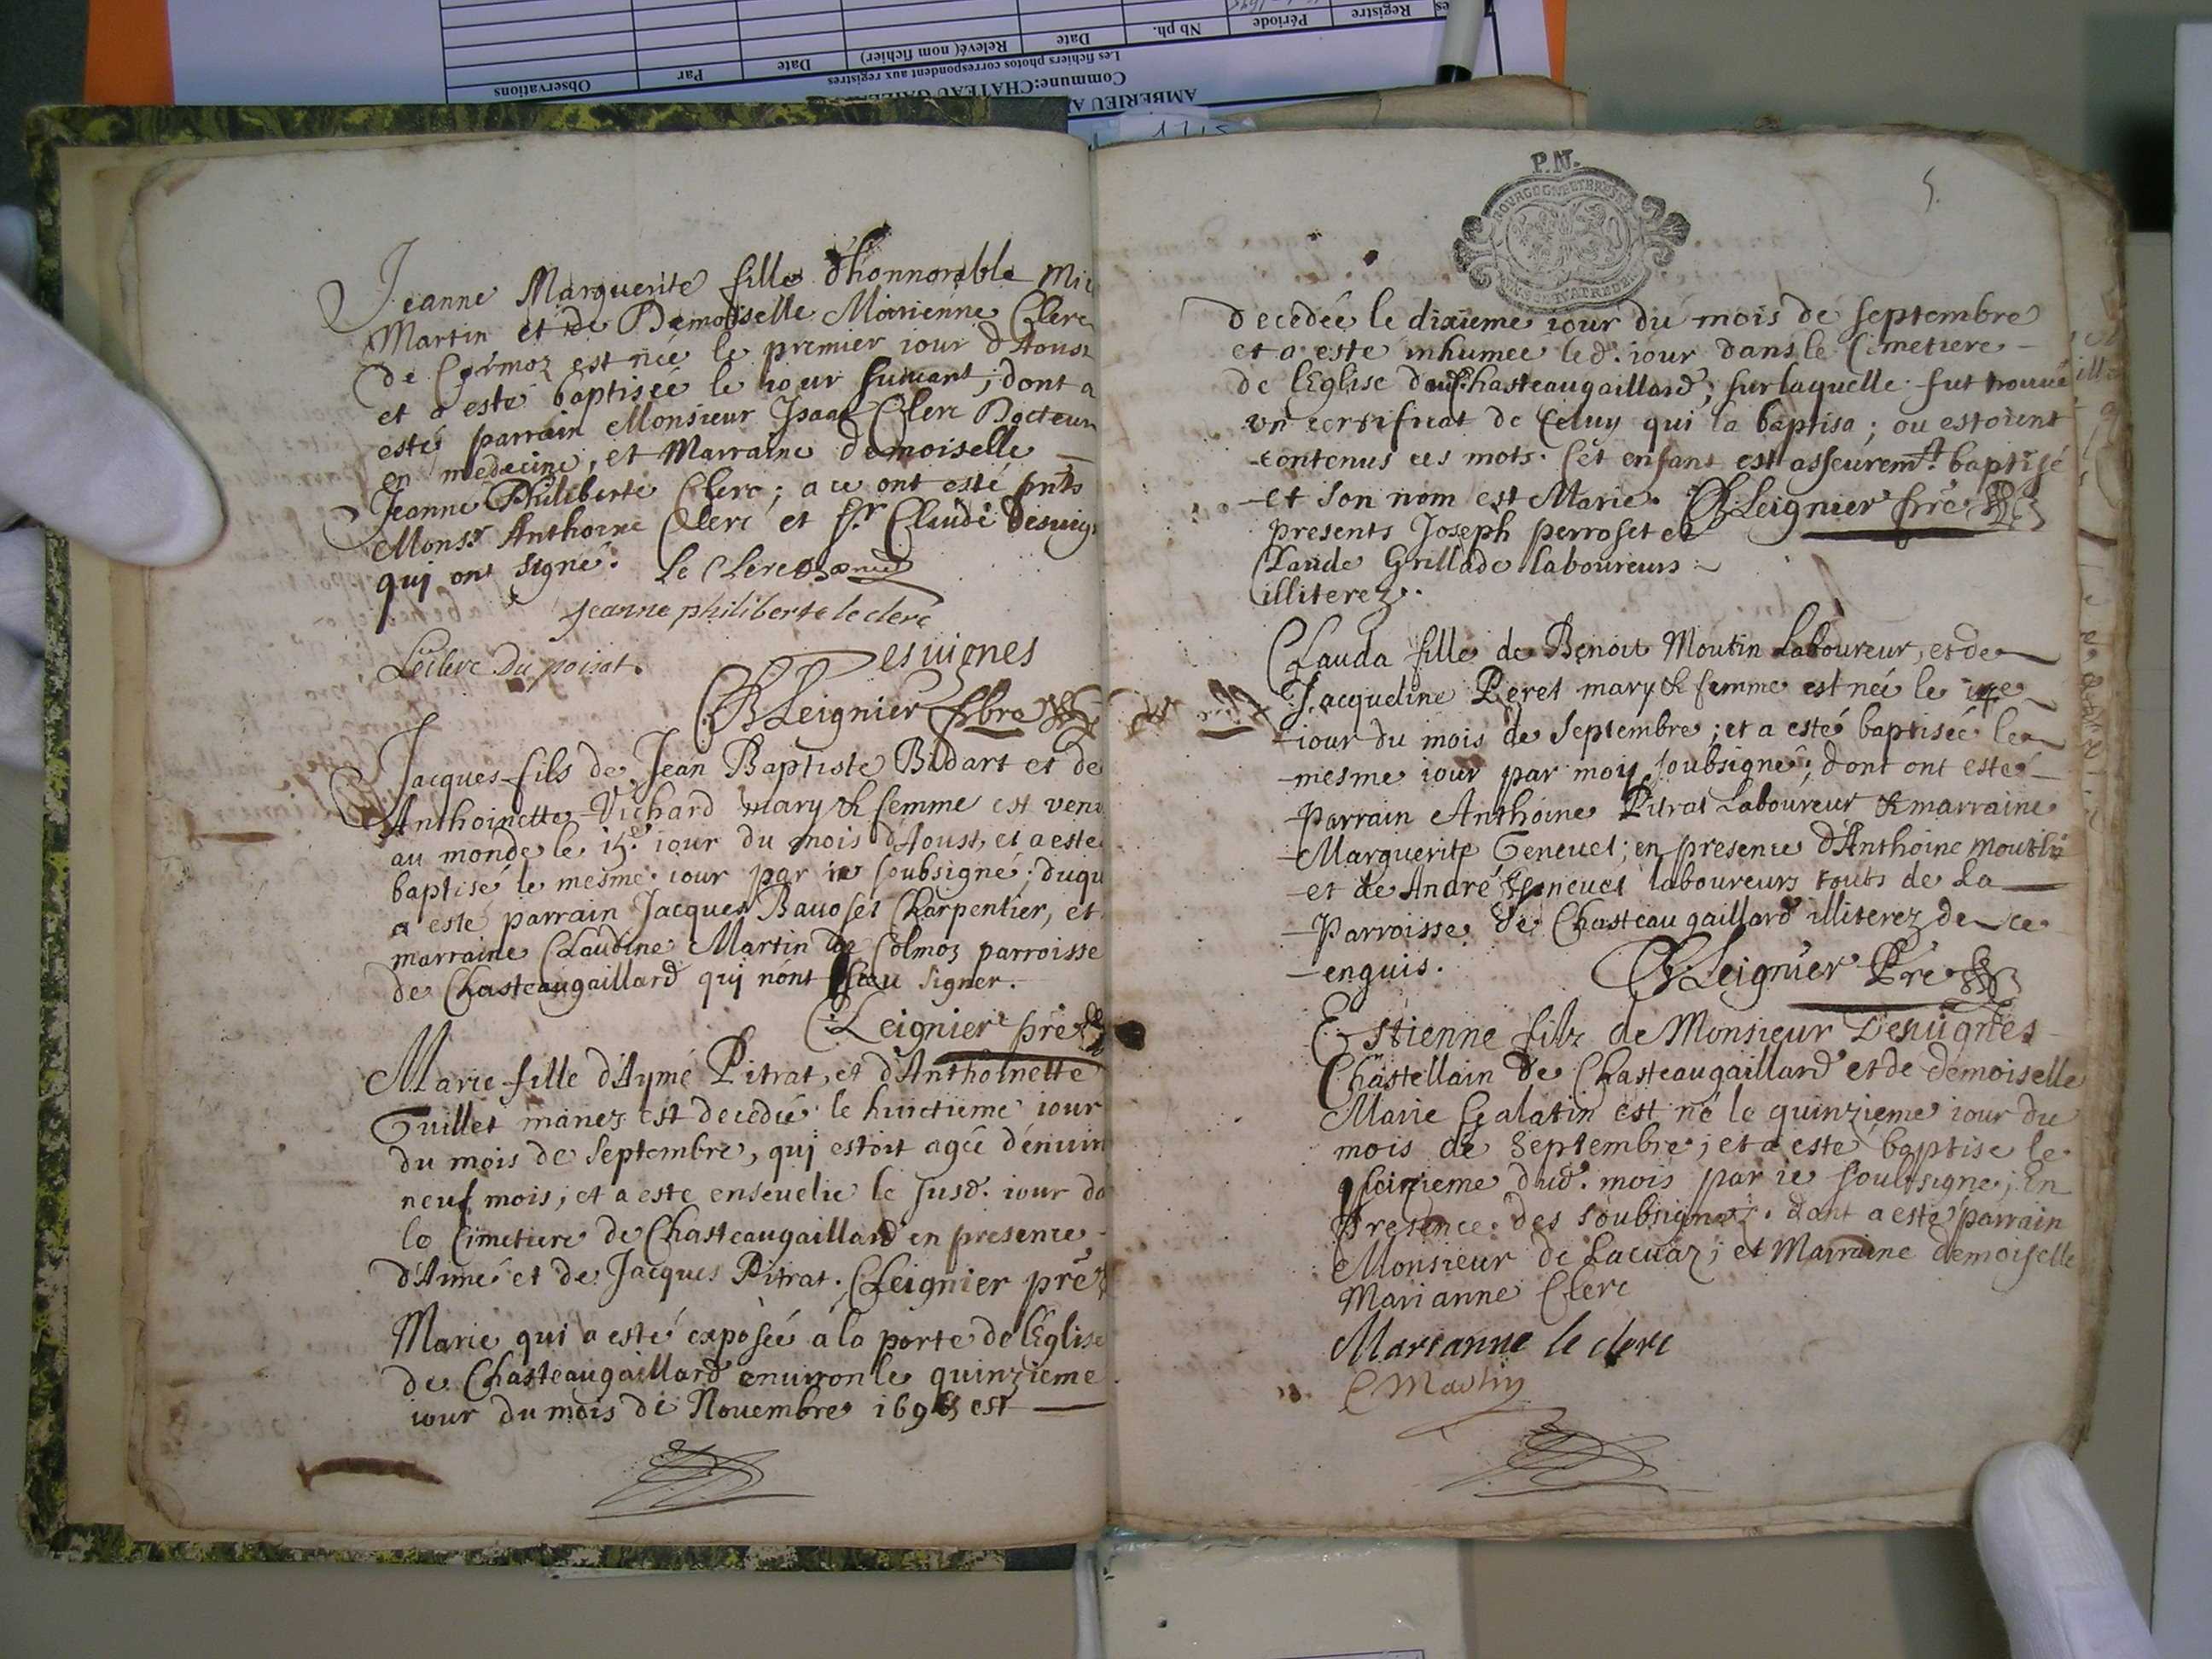 Observations
Par
Date
Relevé( nom fichier)
Date
Nb ph.
Période
Registre
Les fichiers photos correspondent aux registres
Commune:CHATEAU GAIL
AMBERIEU
Jeanne Marguerite fille d'honnorable
Martin et de Demoiselle Marienne Clerc
de Cormoz est neé le premier iour d'Aoust
et a esté baptiseé le iour suivant; dont a
esté parrain Monsieur Isaac Clerc Docteur
en medecine, et Marraine demoiselle
Jeanne Philiberte Clerc; a ce ont esté pnts
Monsr Anthoine Clerc et Sr Claude Desuig
qui ont signé. Le Clerc
jeanne philiberte le clerc
Leclerc Du poisat
Desuignes
Leignier pbre
Jacques fils de Jean Baptiste Bidart et de
Anthoinette Vichard mary & femme est venu
au monde le 15e iour du mois d'Aoust, et a esté
baptisé le mesme iour par ie soubsigné; duqu
a esté parrain Jacques Bauoset Charpentier, et
marraine Claudine Martin de Colmoz parroisse
de Chasteaugaillard qui n'ont sceu signer.
Leignier pre
Marie fille d'Aymé Pitrat, et d'Anthoinette
Guillet mariez est decedeé le huictieme iour
du mois de Septembre, qui estoit ageé d'enuiro
neuf mois; et a esté enseuelie le susd. iour da
le Cimetiere de Chasteaugaillard en presence
d'Aimé et de Jacques Pitrat. Leignier pre
Marie qui a esté exposeé a la porte de l'Eglise
de Chasteaugaillard enuiron le quinzieme
iour du mois de Nouembre est
P.N.
5.
decedeé le dixieme iour du mois de septembre
et a esté inhumeé led. iour dans le Cimetiere
de l'Eglise dud. Chasteaugaillard; sur laquelle fut trouué
un certificat de celuy qui la baptisa; ou estoient
contenus ces mots. Cet enfant est asseuremt baptisé
et son nom est Marie. Leignier pre
presents Joseph perroset et
Claude Grillade laboureurs
illiterez.
Clauda fille de Benoit Moutin Laboureur, et de
Jacqueline Peret mary & femme est neé le
iour du mois de Septembre; et a esté baptiseé le
mesme iour par moy soubsigné; dont ont esté
Parrain Anthoine Pitrat Laboureur & marraine
Marguerite Geneuet; en presence d'Anthoine Moutin
et de André Geneuet laboureurs touts de la
Parroisse de Chasteaugaillard illiterez de ce
enquis. Leignier Pre
Estienne filz de Monsieur Desuignes
Chastellain de Chasteaugaillard et de demoiselle
Marie Galatin est né le quinzieme iour du
mois de Septembre; et a esté baptisé le
seizieme dud. mois par ie soubsigné; En
Presence des soubsignez. dont a esté parrain
Monsieur de Lacuaz; et Marraine demoiselle
Marianne Clerc
Marianne le clerc
C Martin